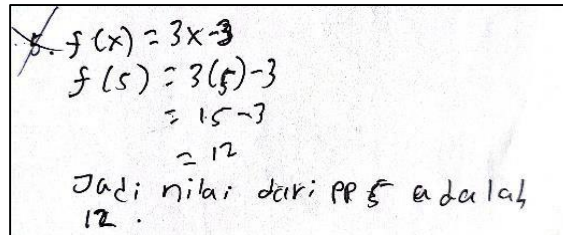 5. f(x) = 3x-3
f(5) = 3(5)-3
= 15-3
= 12
Jadi nilai dari PP 5 adalah
12.